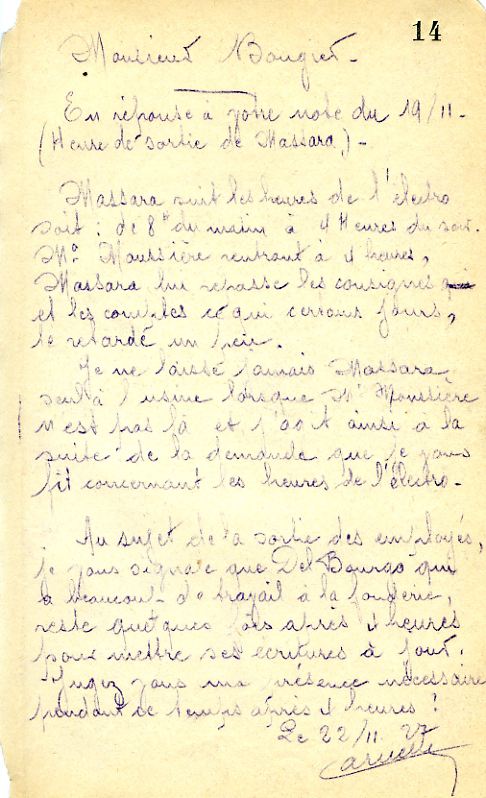 14
Monsieur Bougiet.
En réponse à votre note du 19/11.
(Heure de sortie de Massara).
Massara suit les heures de l'électro
soit : de 8h du matin à 4 Heures du soir.
Mr Moussière rentrant à 4 heures,
Massara lui repasse les consignes
et les comptes ce qui certains jours,
le retarde un peu.
Je ne laisse jamais Massara
seul à l'usine lorsque Mr Moussière
n'est pas là et j'agit ainsi a la
suite de la demande que je vous
fit concernant les heures de l'électro.
Au sujet de la sortie des employés,
je vous signale que Del Bourgo qui
a beaucoup de travail à la fonderie,
reste quelques fois après 4 heures
pour mettre ses écritures à jour.
Jugez vous ma présence nécessaire
pendant ce temps après 4 heures ?
Le 22/11 27